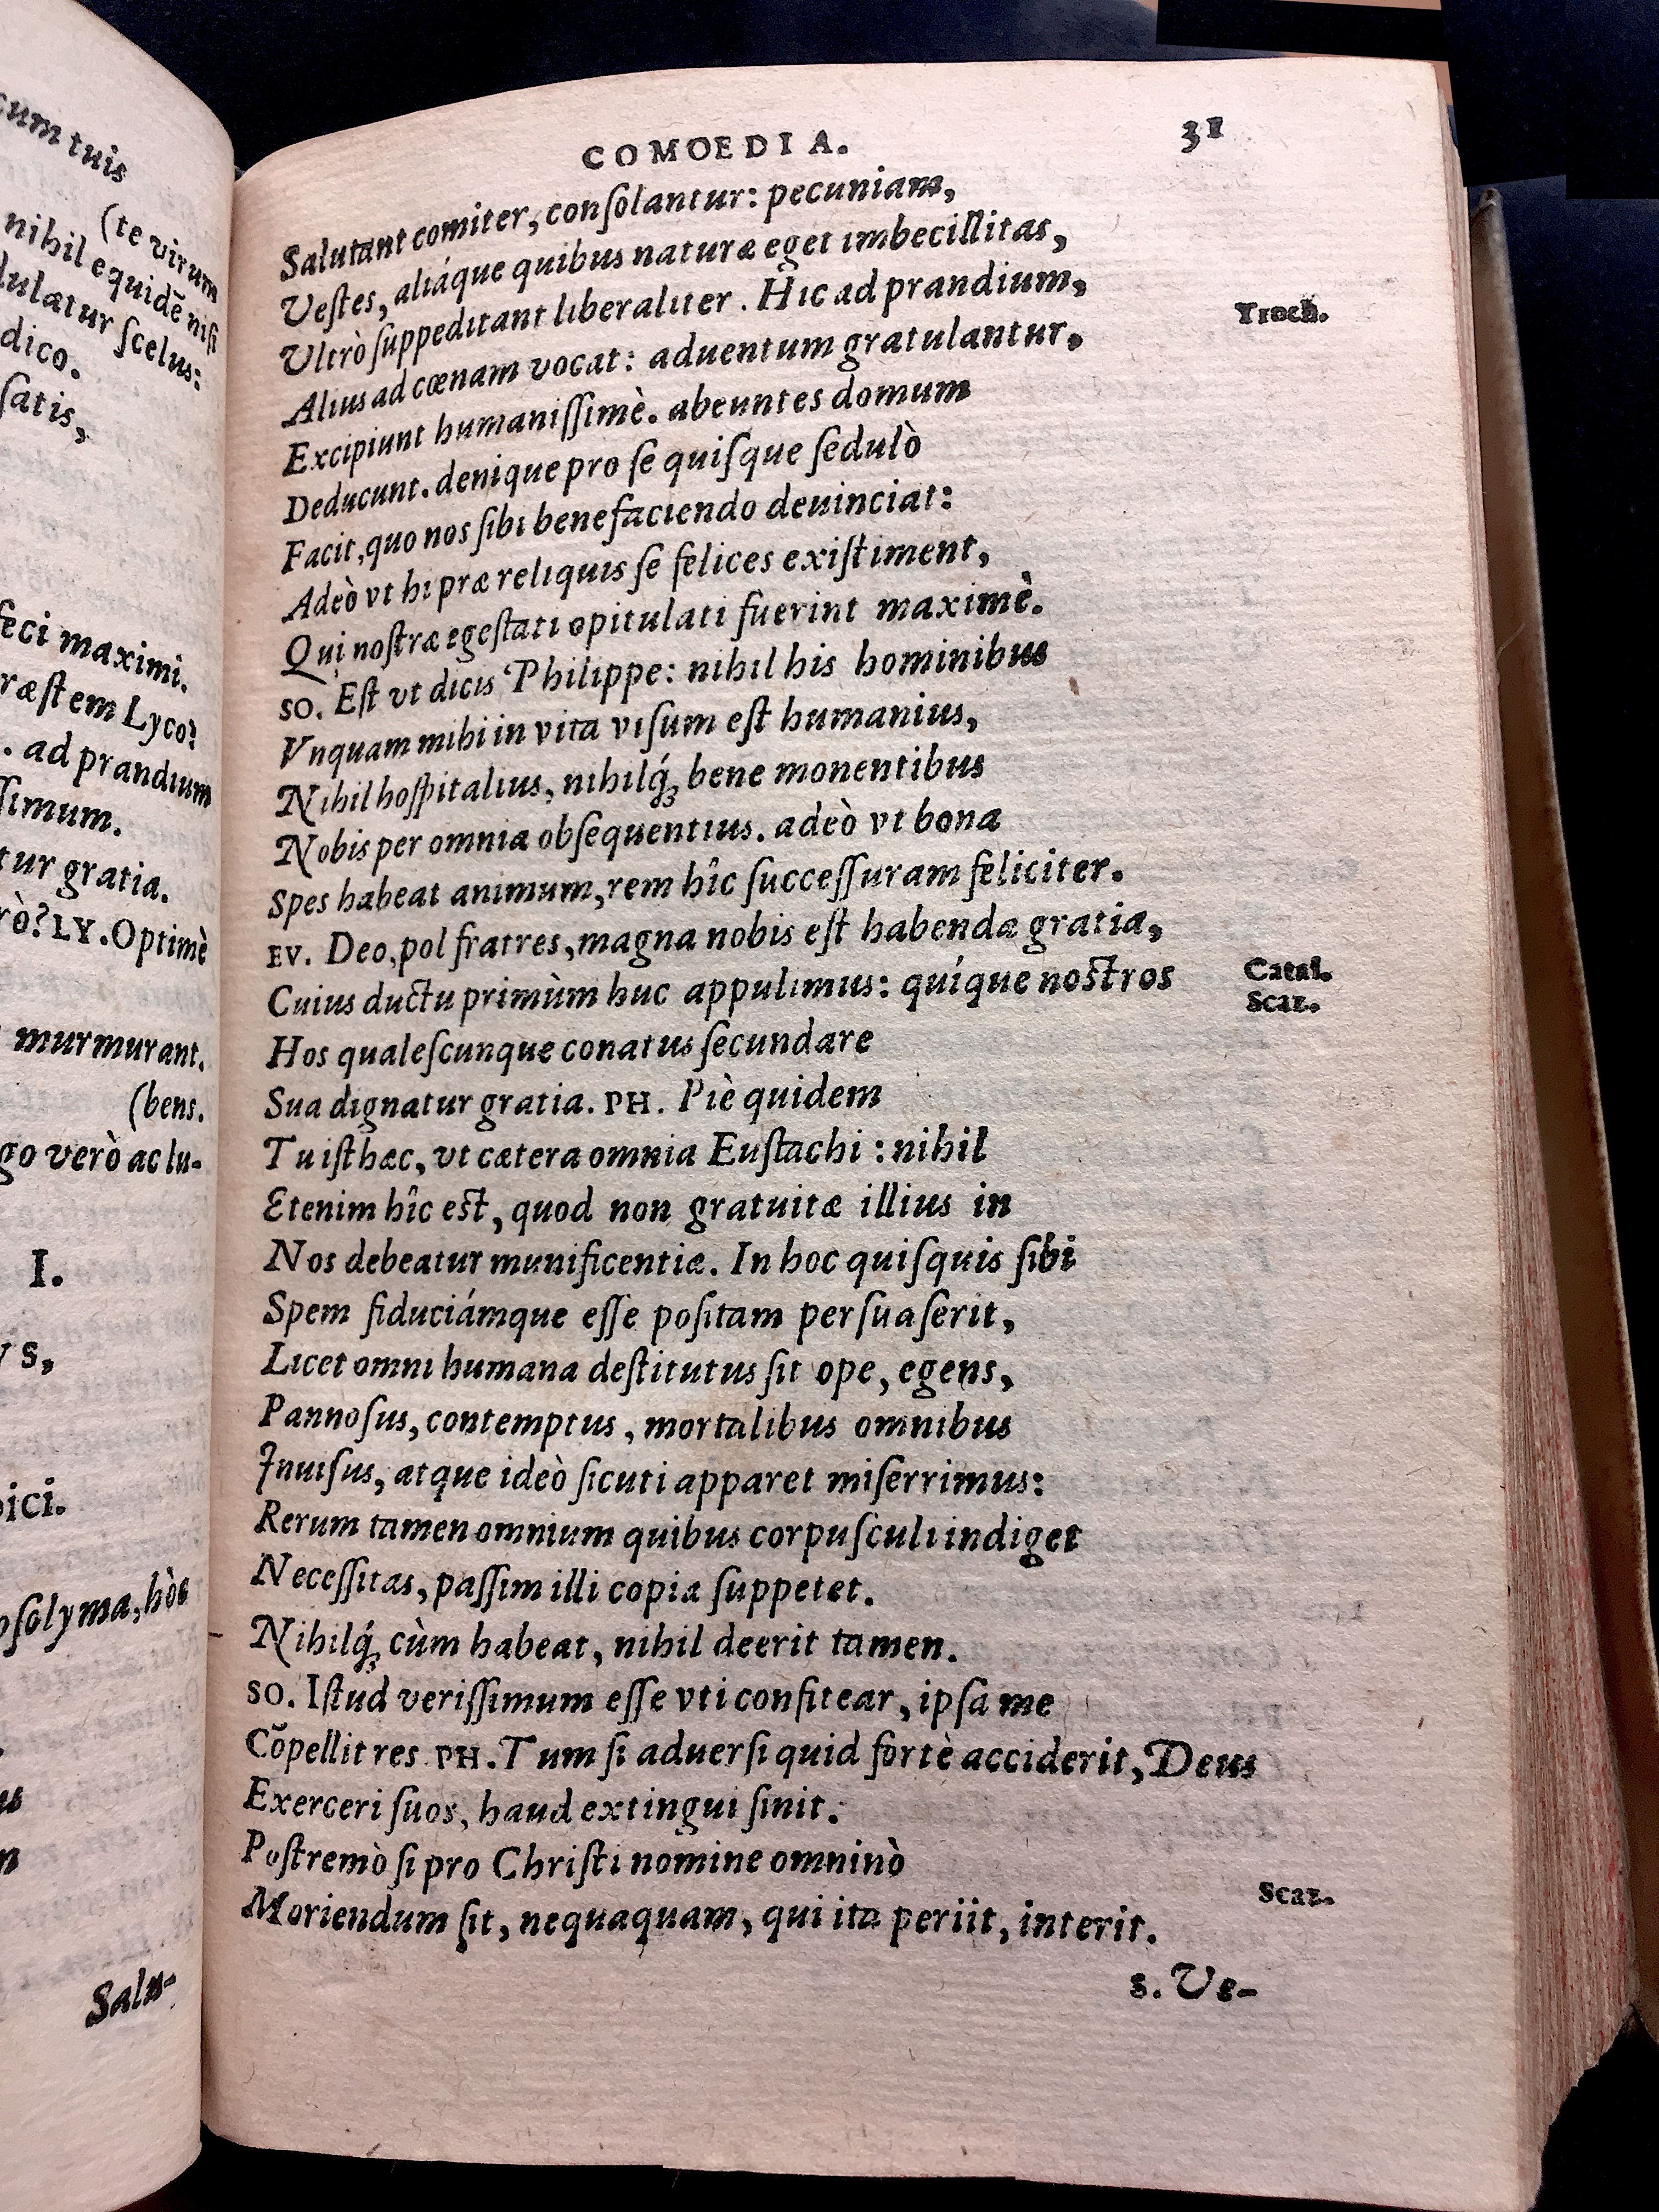 cum tuis
(te virum
nihil equidē nisi
dulatur scelus:
dico.
satis,
feci maximi.
ad prandium
tur gratia.
LY. Optimè
murmurant.
(bens.
go verò ac lu-
I.
Salu-
COMOEDIA. 31
Salutant comiter, consolantur: pecuniam,
Vestes, aliáque quibus naturæ eget imbecillitas,
Ultrò suppeditant liberaliter. Hic ad prandium, Troch.
Alius ad cœnam vocat: aduentum gratulantur,
Excipiunt humanissimè. abeuntes domum
Deducunt. denique pro se quisque sedulò
Facit, quo nos sibi benefaciendo deuinciat:
Adeò vt hi præ reliquis se felices existiment,
Qui nostræ egestati opitulati fuerint maximè.
SO. Est vt dicis Philippe: nihil his hominibus
Vnquam mihi in vita visum est humanius,
Nihil hospitalius, nihilq́; bene monentibus
Nobis per omnia obsequentius. adeò vt bona
Spes habeat animum, rem hîc successuram feliciter.
EV. Deo, pol fratres, magna nobis est habenda gratia,
Cuius ductu primùm huc appulimus: quíque nostros Catal.
Scaz.
Hos qualescunque conatus secundare
Sua dignatur gratia. PH. Piè quidem
Tu isthæc, vt cætera omnia Eustachi: nihil
Etenim hîc est, quod non gratuitæ illius in
Nos debeatur munificentiæ. In hoc quisquis sibi
Spem fiduciámque esse positam persuaserit,
Licet omni humana destitutus sit ope, egens,
Pannosus, contemptus, mortalibus omnibus
Inuisus, atque ideò sicuti apparet miserrimus:
Rerum tamen omnium quibus corpusculi indiget
Necessitas, passim illi copia suppetet.
Nihilq́; cùm habeat, nihil deerit tamen.
SO. Istud verissimum esse vti confitear, ipsa me
Cōpellit res PH. Tum si aduersi quid fortè acciderit, Deus
Exerceri suos, haud extingui sinit.
Postremò si pro Christi nomine omninò
Moriendum sit, nequaquam, qui ita periit, interit. Scaz.
S. Ve-